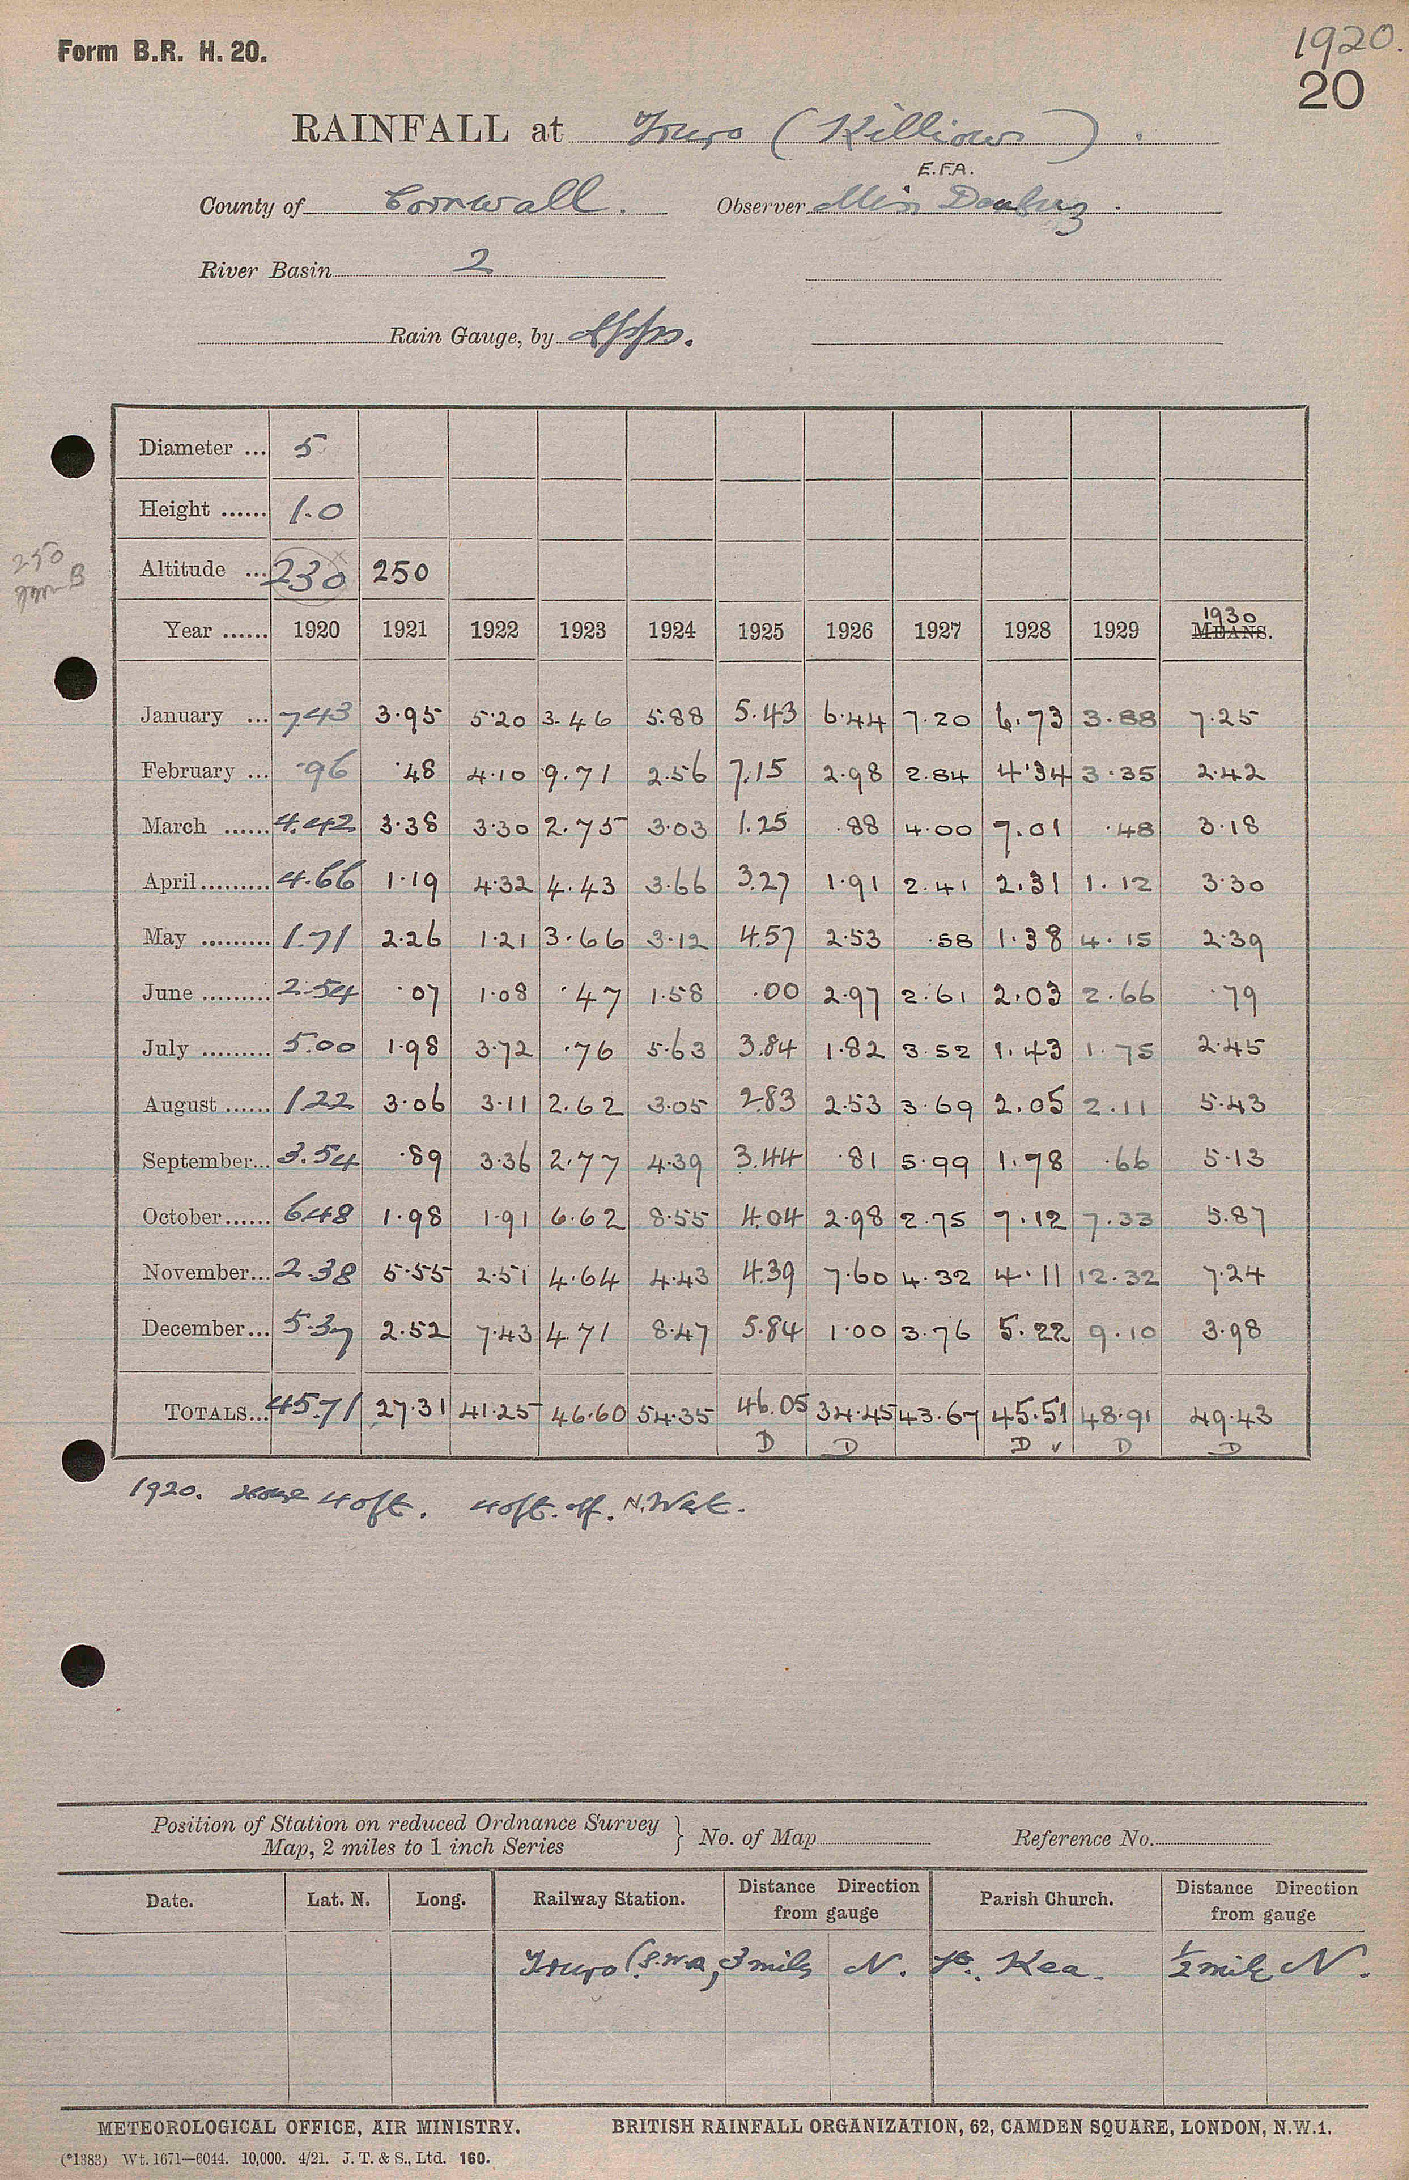 Form B.R. H. 20.
1920.
20
RAINFALL at Truro (Killiow).
E.F.A.
County of Cornwall. Observer Miss Daubuz.
River Basin 2
Rain Gauge, by Apps.
Diameter ... 5
Height ...... 1.0
250
Altitude ... 230 250
Year ...... 1920 1921 1922 1923 1924 1925 1926 1927 1928 1929 1930 MEANS.
January ... 7.43 3.95 5.20 3.46 5.88 5.43 6.44 7.20 6.73 3.88 7.25
February ... .96 .48 4.10 9.71 2.56 7.15 2.98 2.84 4.34 3.35 2.42
March ...... 4.42 3.38 3.30 2.75 3.03 1.25 .88 4.00 7.01 .48 3.18
April ......... 4.66 1.19 4.32 4.43 3.66 3.27 1.91 2.41 2.31 1.12 3.30
May ......... 1.71 2.26 1.21 3.66 3.12 4.57 2.53 .58 1.38 4.15 2.39
June ......... 2.54 .07 1.08 .47 1.58 .00 2.97 2.61 2.03 2.66 .79
July ......... 5.00 1.98 3.72 .76 5.63 3.84 1.82 3.52 1.43 1.75 2.45
August ...... 1.22 3.06 3.11 2.62 3.05 2.83 2.53 3.69 2.05 2.11 5.43
September... 3.54 .89 3.36 2.77 4.39 3.44 .81 5.99 1.78 .66 5.13
October...... 6.48 1.98 1.91 6.62 8.55 4.04 2.98 2.75 7.12 7.33 5.87
November... 2.38 5.55 2.51 4.64 4.43 4.39 7.60 4.32 4.11 12.32 7.24
December... 5.37 2.52 7.43 4.71 8.47 5.84 1.00 3.76 5.22 9.10 3.98
TOTALS... 45.71 27.31 41.25 46.60 54.35 46.05 34.45 43.67 45.51 48.91 49.43
D D D v D D
1920. House 40ft. 40ft. off. N. West.
Position of Station on reduced Ordnance Survey
Map, 2 miles to 1 inch Series } No. of Map Reference No.
Date. Lat. N. Long. Railway Station. Distance Direction from gauge Parish Church. Distance Direction from gauge
Truro (G.W.R.) 3 miles N. St. Kea. 1/2 mile N.
METEOROLOGICAL OFFICE, AIR MINISTRY. BRITISH RAINFALL ORGANIZATION, 62, CAMDEN SQUARE, LONDON, N.W.1.
(*1383) Wt. 1671—6044. 10,000. 4/21. J. T. & S., Ltd. 160.